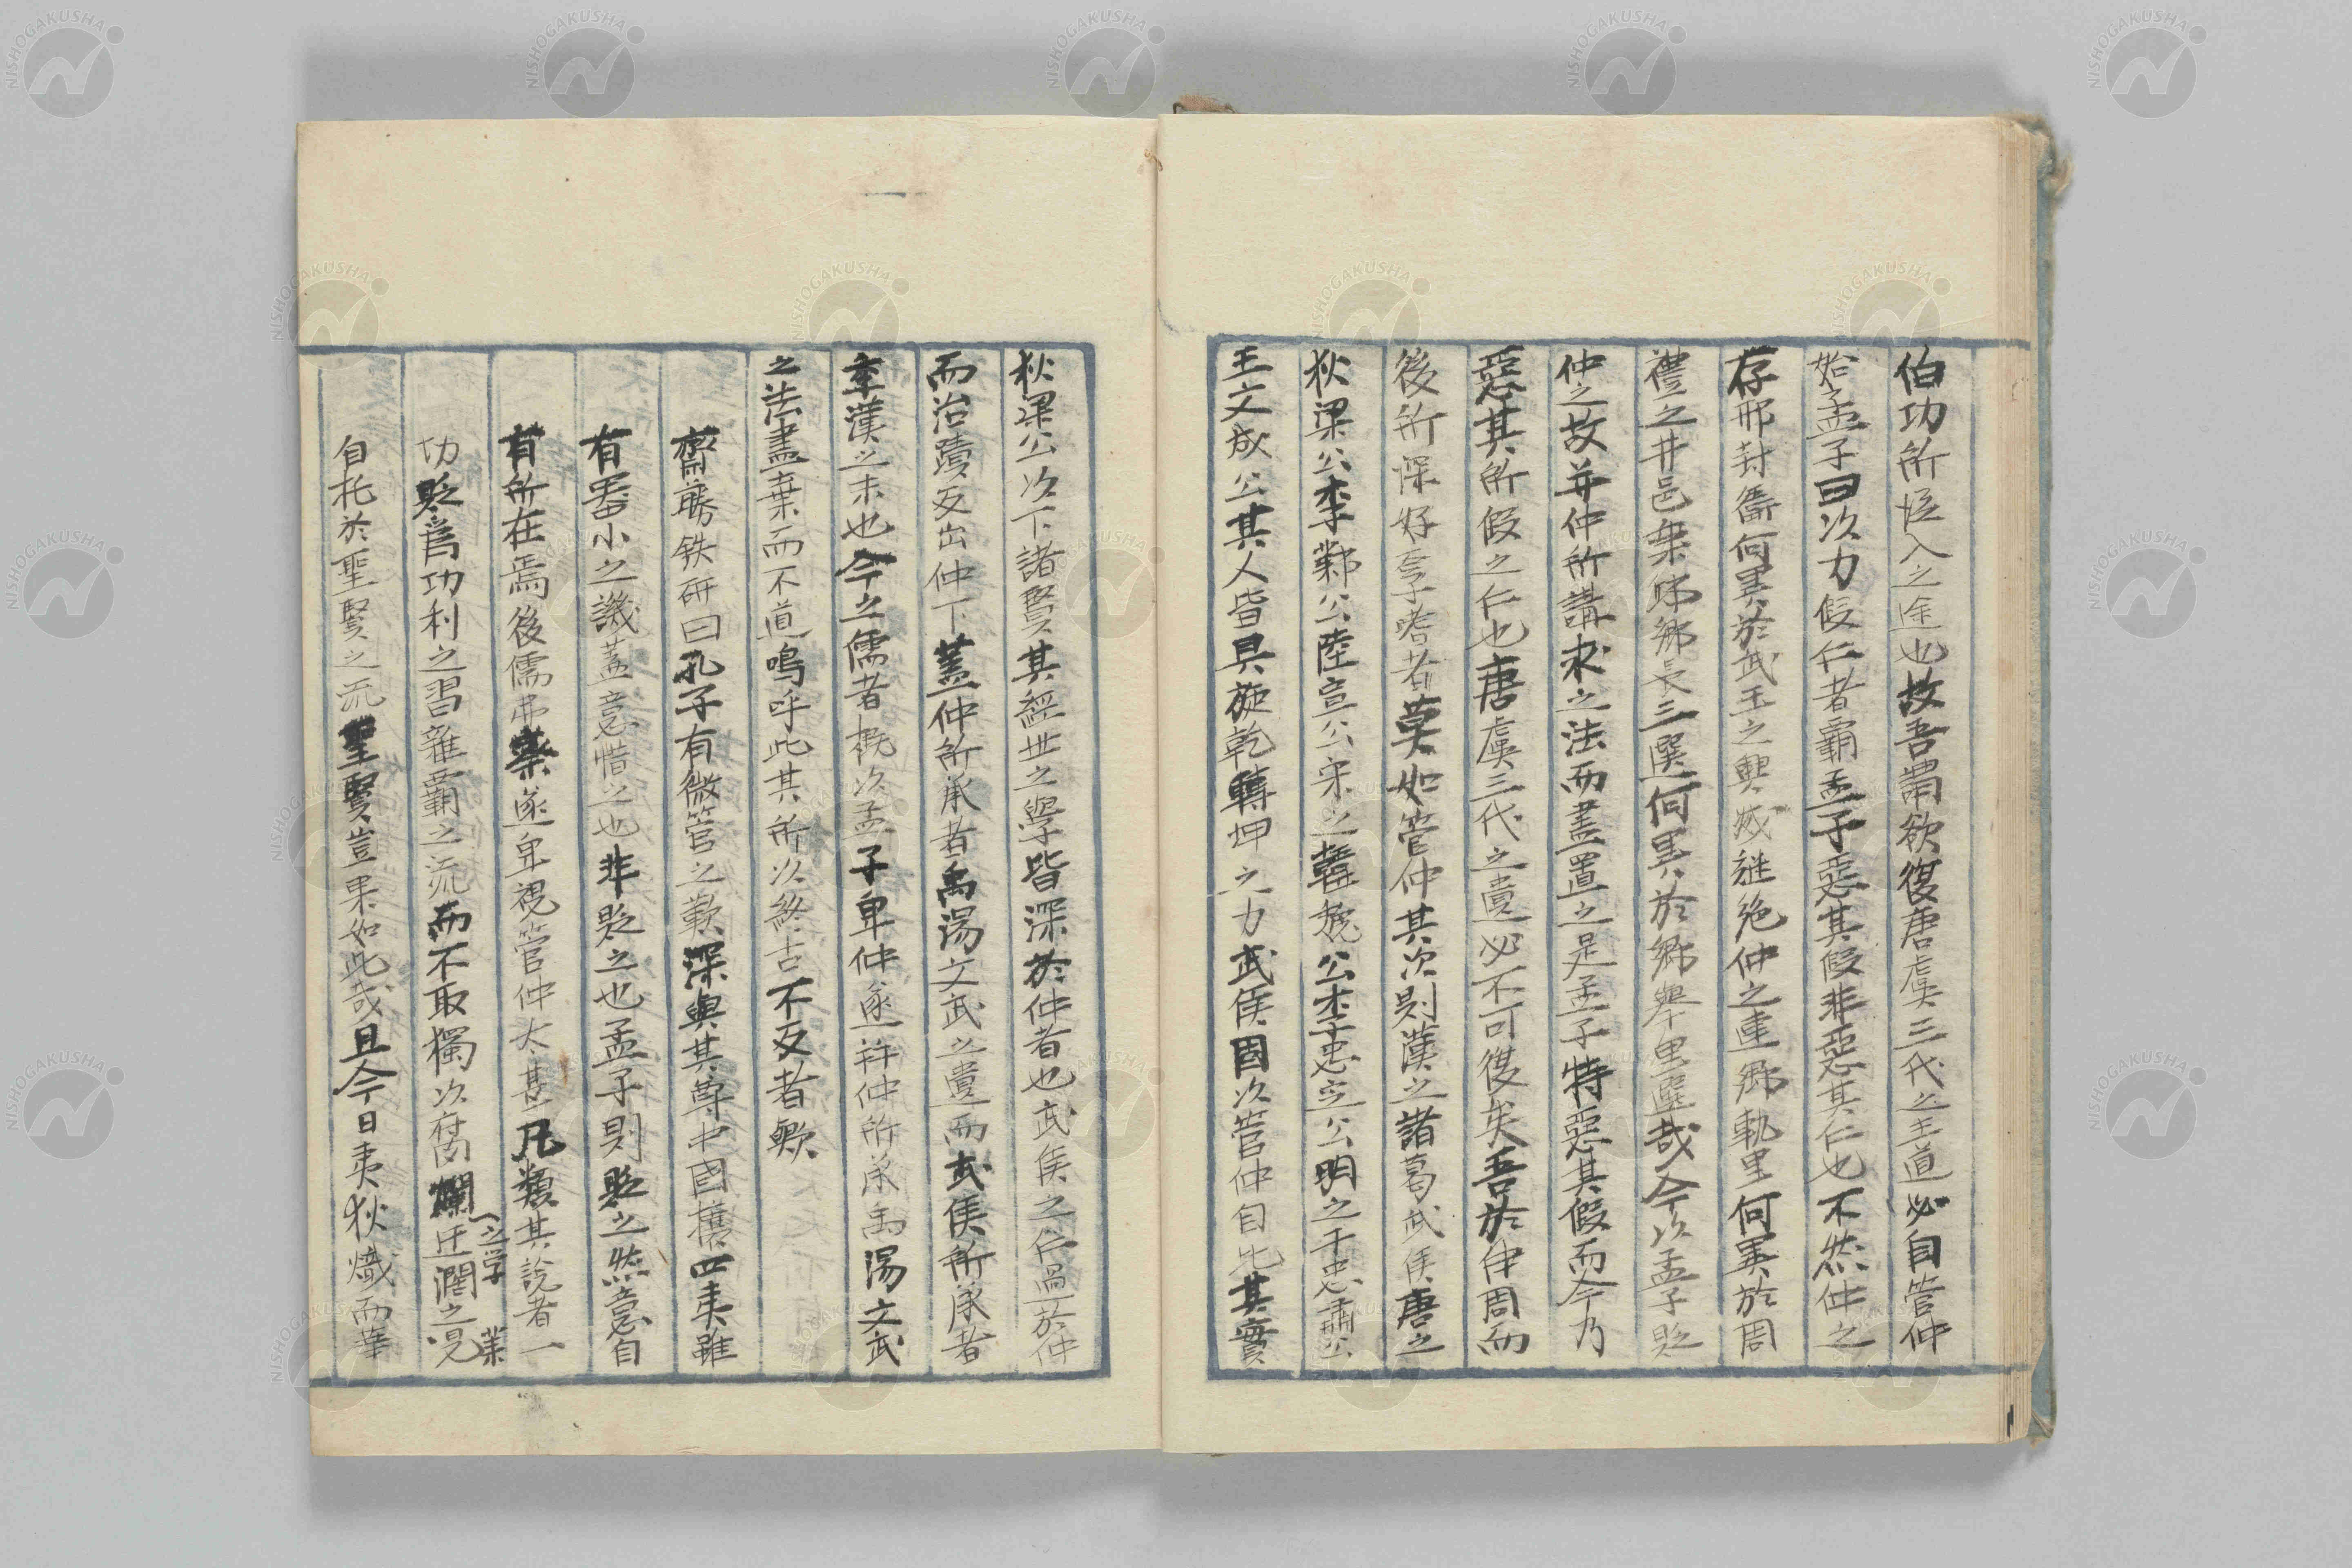 伯功所從入之途也故吾謂欲復唐虞三代之王道必自管仲
始孟子曰以力假仁者霸孟子惡其假非惡其仁也不然仲之
存邢封衞何異於武王之興滅継絶仲之連鄉軌里何異於周
禮之井邑乘縣鄉長三選何異於鄉舉里選哉今以孟子貶
仲之故并仲所講求之法而盡置之是孟子特惡其假而今乃
惡其所假之仁也唐虞三代之遺必不可復矣吾於伊周而
後所深好
者莫如管仲其次則漢之諸葛武侯唐之
狄梁公李鄴公陸宣公宋之韓魏公李忠定公明之于忠肅公
王文成公其人皆具旋乾轉坤之力武侯固以管仲自比其實
狄梁公以下諸賢其經世之學皆深於仲者也武侯之仁過於仲
而治蹟反出仲下蓋仲所承者禹湯文武之遺而武侯所承者
季漢之末也今之儒者概以孟子卑仲遂并仲所承禹湯文武
之法盡棄而不道嗚呼此其所以終古不反者歟
齋藤鉄研曰孔子有微管之歎深與其尊中國攘四夷雖
有器小之譏蓋意惜之也非貶之也孟子則貶之然意自
有所在焉後儒弗察遂卑視管仲太甚凡類其說者一
功貶爲功利之習雜霸之流而不取獨以腐爛迂濶之見
之学
業
自托於聖賢之流聖賢豈果如此哉且今日夷狄熾而華
NISHOGAKUSHA